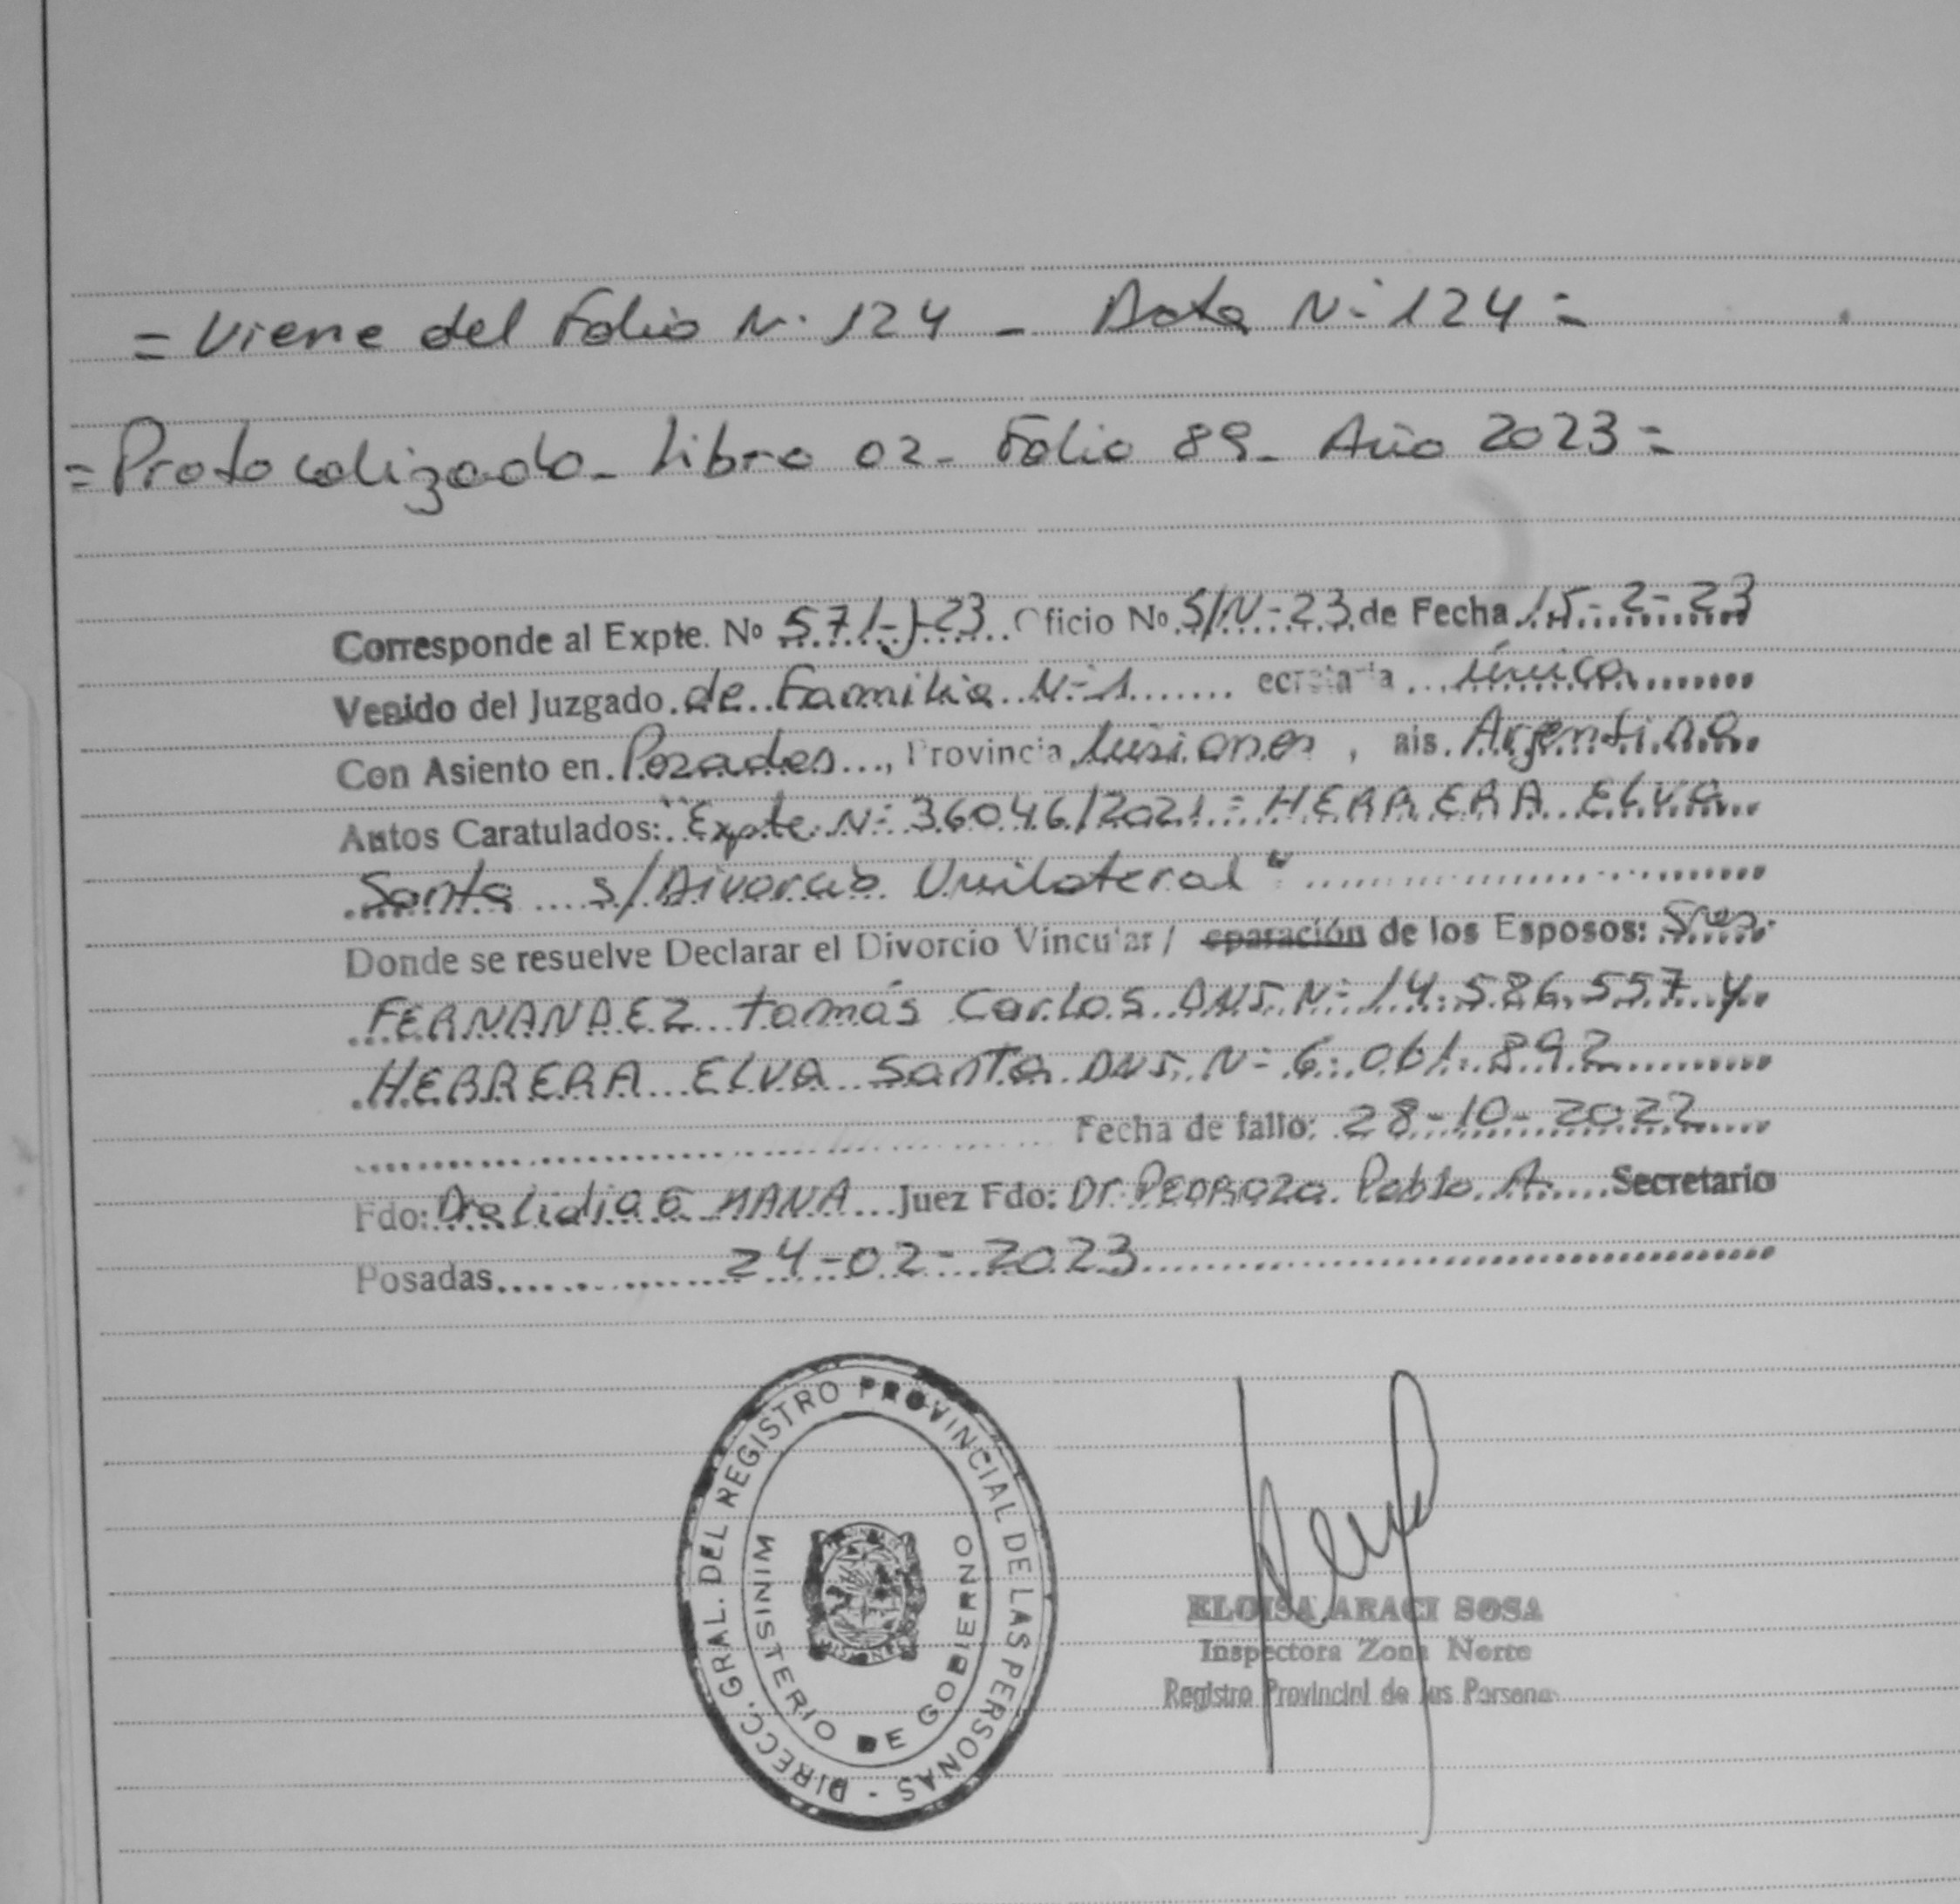 = Viene del Folio N· 124 - Acta N-° 124 =
= Protocolizado - Libro 02 - Folio 89 - Año 2023 =
Corresponde al Expte. Nº 571-J-23 Oficio Nº S/N-23 de Fecha 15-2-23
Venido del Juzgado de Familia N-° 1 ecretaria única
Con Asiento en Posadas, Provincia Misiones, ais Argentina
Autos Caratulados: "Expte N-° 36046/2021 = HERRERA ELVA
Santa s/ Divorcio Unilateral"
Donde se resuelve Declarar el Divorcio Vincular / eparación de los Esposos: Sres.
FERNANDEZ tomás Carlos DNI. N-° 14.586.557 y
HERRERA ELVA Santa DNI. N-° 6.061.892
Fecha de fallo: 28-10-2022
Fdo: Dra Lidia G Juez Fdo: Dr. PEDROZA Pablo A. Secretario
Posadas 24-02-2023
DIRECC. GRAL. DEL REGISTRO PROVINCIAL DE LAS PERSONAS -
MINISTERIO DE GOBIERNO
ELOISA ARACI SOSA
Inspectora Zona Norte
Registro Provincial de las Personas